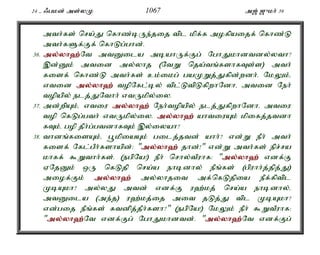 24 - ஃபமன் அள்லமு 1067 அஜ் ஜுமர் 39
அவர்கள் செய்து கொண்டிருந்ததை விட மிக்க அழகியதைக் கொண்டு அவர்களுக்குக் கொடுப்பான்.
36. அல்லாஹ்வே அவனுடைய அடியாருக்குப் போதுமானவனல்லவா?
இன்னும் அவனை அல்லாத (வேறு தெய்வங்களாகவுள்ள) அவர்
களைக் கொண்டு அவர்கள் உம்மைப் பயமுறுத்துகின்றனர். மேலும்,
எவனை அல்லாஹ் வழிகேட்டில் விட்டுவிடுகிறானோ, அவனை நேர்
வழியில் நடத்துவோர் எவருமில்லை.
37. அன்றியும், எவரை அல்லாஹ் நேர்வழியில் நடத்துகிறானோ, அவரை
வழி கெடுப்பவர் எவருமில்லை. அல்லாஹ் யாவரையும் மிகைத்தவனா
கவும், பழி தீர்ப்பவனாகவும் இல்லையா?
38. வானங்களையும், பூமியையும் படைத்தவன் யார்? என்று நீர் அவர்
களைக் கேட்பீர்களாயின்: "அல்லாஹ் தான்!" என்று அவர்கள் நிச்சய
மாகக் கூறுவார்கள். (நபியே!) நீர் சொல்வீராக: "அல்லாஹ் எனக்கு
ஏதேனும் ஒரு கெடுதி செய்ய நாடினால் நீங்கள் (பிரார்த்தித்து)
அழைக்கும் அல்லாஹ் அல்லாதவை அக்கெடுதியை நீக்கிவிட
முடியுமா! அல்லது அவன் எனக்கு ரஹ்மத் செய்ய நாடினால்,
அவனுடைய (அந்த) ரஹ்மத்தை அவை தடுத்து விட முடியுமா!
என்பதை நீங்கள் கவனித்தீர்களா!" (நபியே!) மேலும் நீர் கூறுவீராக:
"அல்லாஹ்வே எனக்குப் போதுமானவன். "அல்லாஹ்வே எனக்குப்